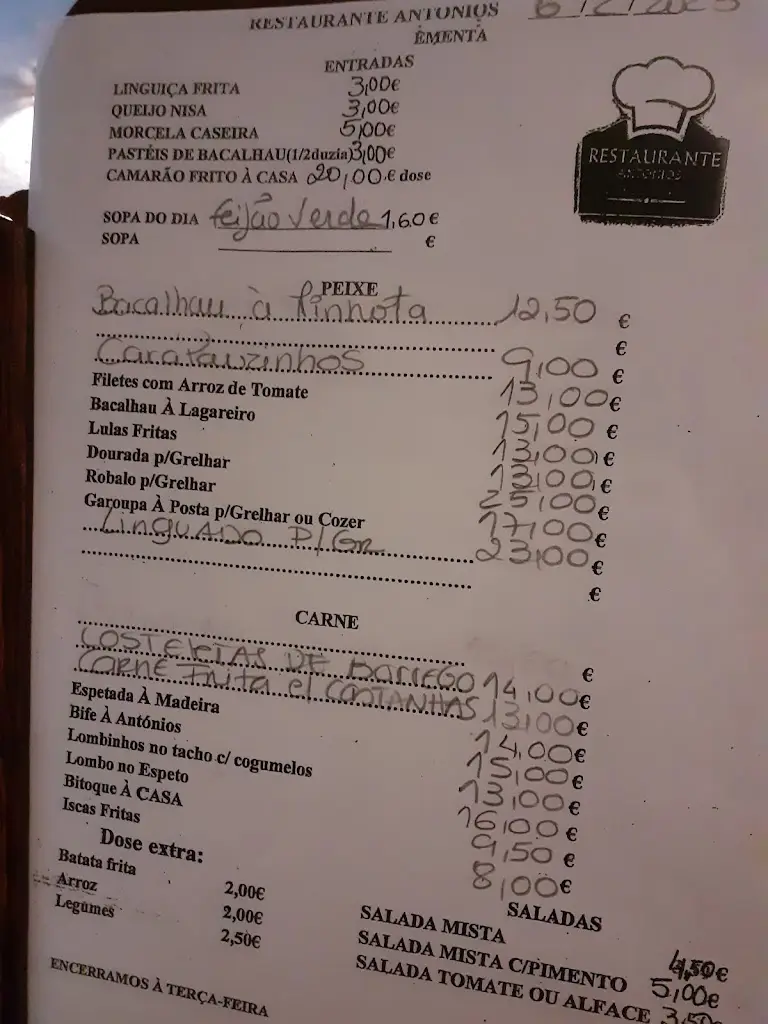 RESTAURANTE ANTONIOS
EMENTA
ENTRADAS
LINGUIÇA FRITA 3,00€
QUEIJO NISA 3,00€
MORCELA CASEIRA 5,00€
PASTÉIS DE BACALHAU(1/2duzia)3,00€
CAMARÃO FRITO À CASA 20,00.€ dose
RESTAURANTE
ANTONIOS
SOPA DO DIA feijão Verde 1,60 €
SOPA €
PEIXE
Bacalhau à 12,50 €
€
Carapauzinhos 9,00 €
Filetes com Arroz de Tomate 13,00€
Bacalhau À Lagareiro 15,00 €
Lulas Fritas 13,00€
Dourada p/Grelhar 13,00€
Robalo p/Grelhar 25,00€
Garoupa À Posta p/Grelhar ou Cozer 17,00€
Linguado P/Gr 23,00€
€
CARNE
€
COSTELETAS DE BORREGO 14,00€
CARNE Frita c/ CASTANHAS 13,00€
Espetada À Madeira 14,00€
Bife À Antónios 15,00€
Lombinhos no tacho c/ cogumelos 13,00€
Lombo no Espeto 16,00€
Bitoque À CASA 9,50 €
Iscas Fritas 8,00€
Dose extra:
Batata frita 2,00€
Arroz 2,00€
Legumes 2,50€
SALADAS
SALADA MISTA 4,50€
SALADA MISTA C/PIMENTO 5,00€
SALADA TOMATE OU ALFACE 3,50
ENCERRAMOS À TERÇA-FEIRA